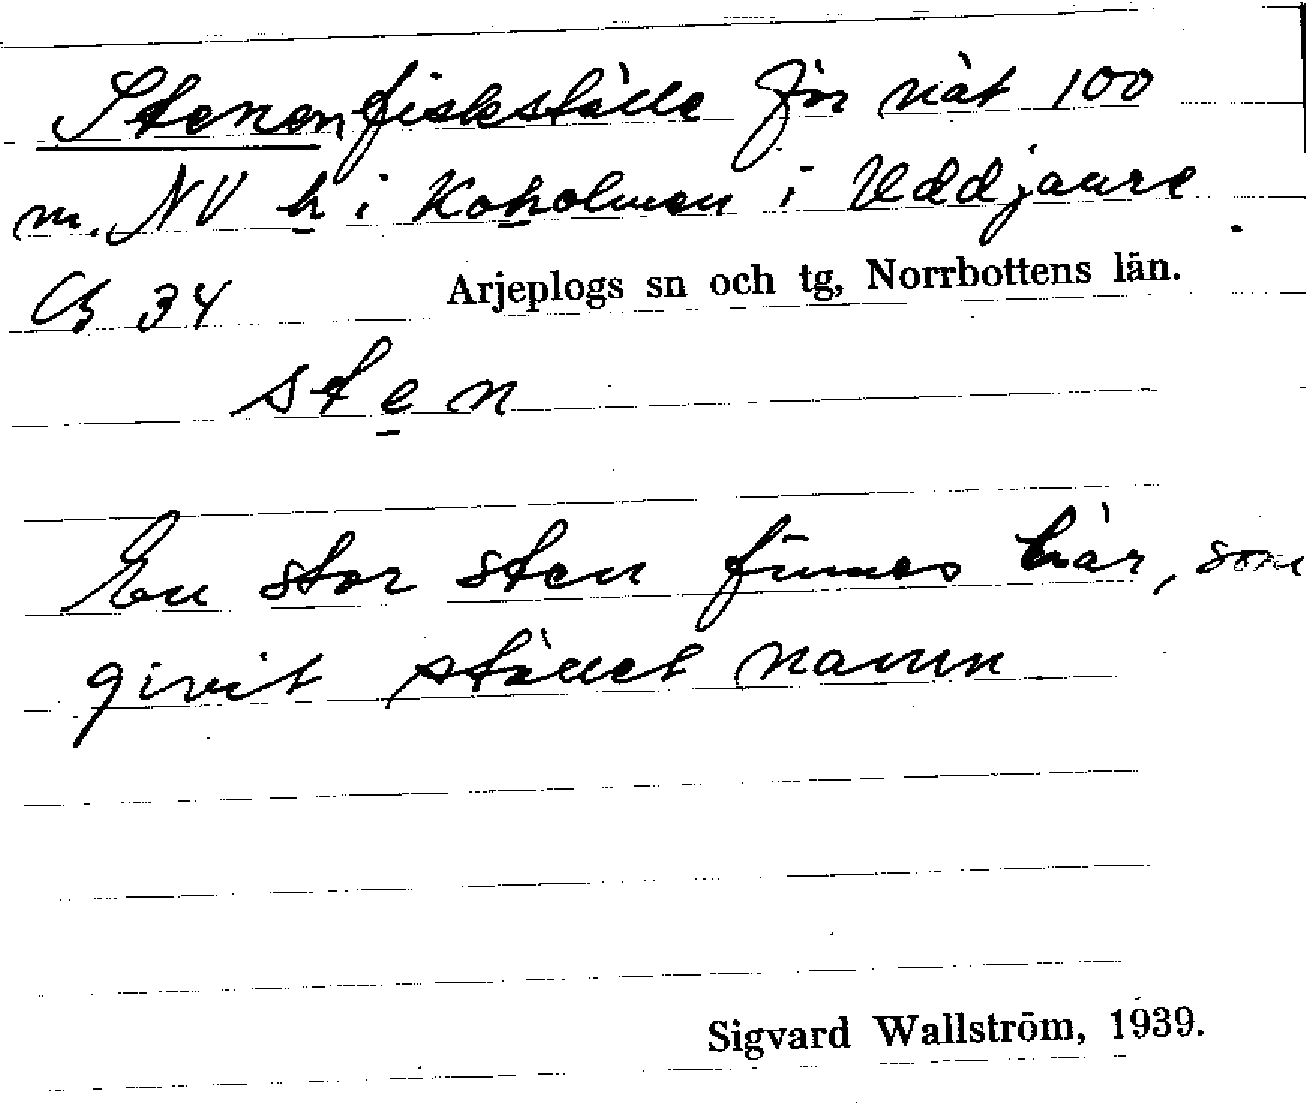 Stenen, fiskställe för nät 100
m. NV h i Koholmen i Uddjaure.
34 Arjeplogs sn och tg, Norrbottens län.
sten
En stor sten finnes här, som
givit stället namn
Sigvard Wallström, 1939.